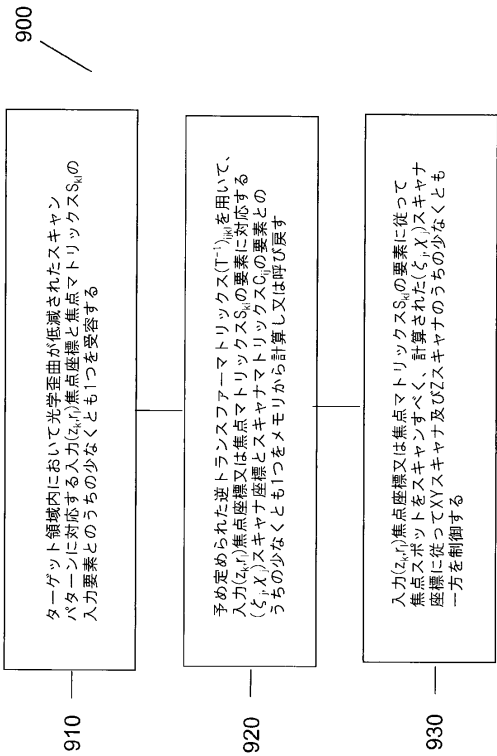 900
910
ターゲット領域内において光学歪曲が低減されたスキャン
パターンに対応する入力(zₖ,rₗ)焦点座標と焦点マトリックスSₖₗの
入力要素とのうちの少なくとも1つを受容する
920
予め定められた逆トランスファーマトリックス(T⁻¹)ᵢⱼₖₗを用いて、
入力(zₖ,rₗ)焦点座標又は焦点マトリックスSₖₗの要素に対応する
(ζᵢ,χⱼ)スキャナ座標とスキャナマトリックスCᵢⱼの要素との
うちの少なくとも1つをメモリから計算し又は呼び戻す
930
入力(zₖ,rₗ)焦点座標又は焦点マトリックスSₖₗの要素に従って
焦点スポットをスキャンすべく、計算された(ζᵢ,χⱼ)スキャナ
座標に従ってXYスキャナ及びZスキャナのうちの少なくとも
一方を制御する